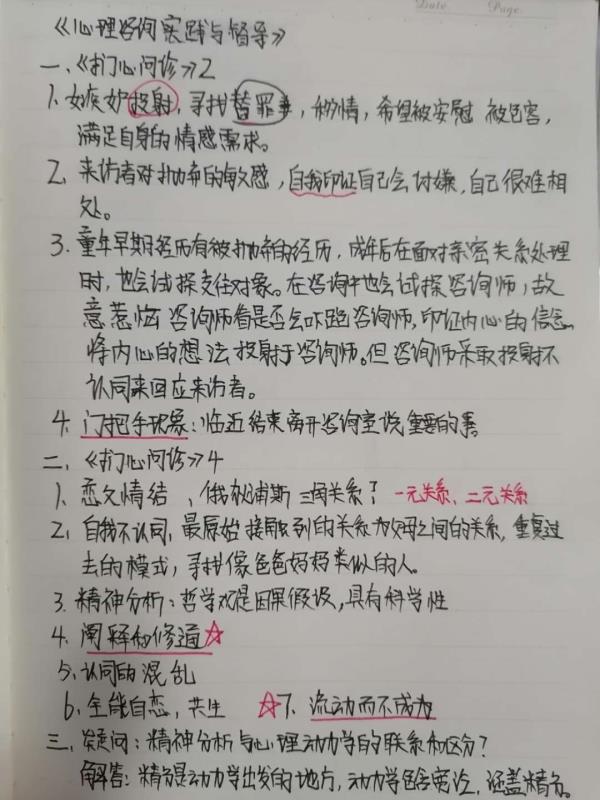 Date. Page.
《心理咨询实践与督导》
一、《扪心问诊》2
1. 嫉妒投射,寻找替罪羊,移情,希望被安慰 被包容,
满足自身的情感需求。
2. 来访者对抛弃的敏感,自我印证自己会讨嫌,自己很难相
处。
3. 童年早期经历有被抛弃的经历,成年后在面对亲密关系处理
时,也会试探交往对象。在咨询中也会试探咨询师,故
意惹恼咨询师看是否会吓跑咨询师,印证内心的信念。
将内心的想法投射于咨询师。但咨询师采取投射不
认同来回应来访者。
4. 门把手现象:临近结束离开咨询室说重要的事。
二、《扪心问诊》4
1. 恋父情结、俄狄浦斯 三角关系? 一元关系、二元关系
2. 自我不认同,最原始接触到的关系为父母之间的关系,重复过
去的模式,寻找像爸爸妈妈类似的人。
3. 精神分析:哲学观是因果假设,具有科学性
4. 阐释和修通☆
5. 认同的混乱
6. 全能自恋,共生 ☆7. 流动而不成为
三、疑问:精神分析与心理动力学的联系和区分?
解答:精分是动力学出发的地方,动力学包含宽泛,涵盖精分。